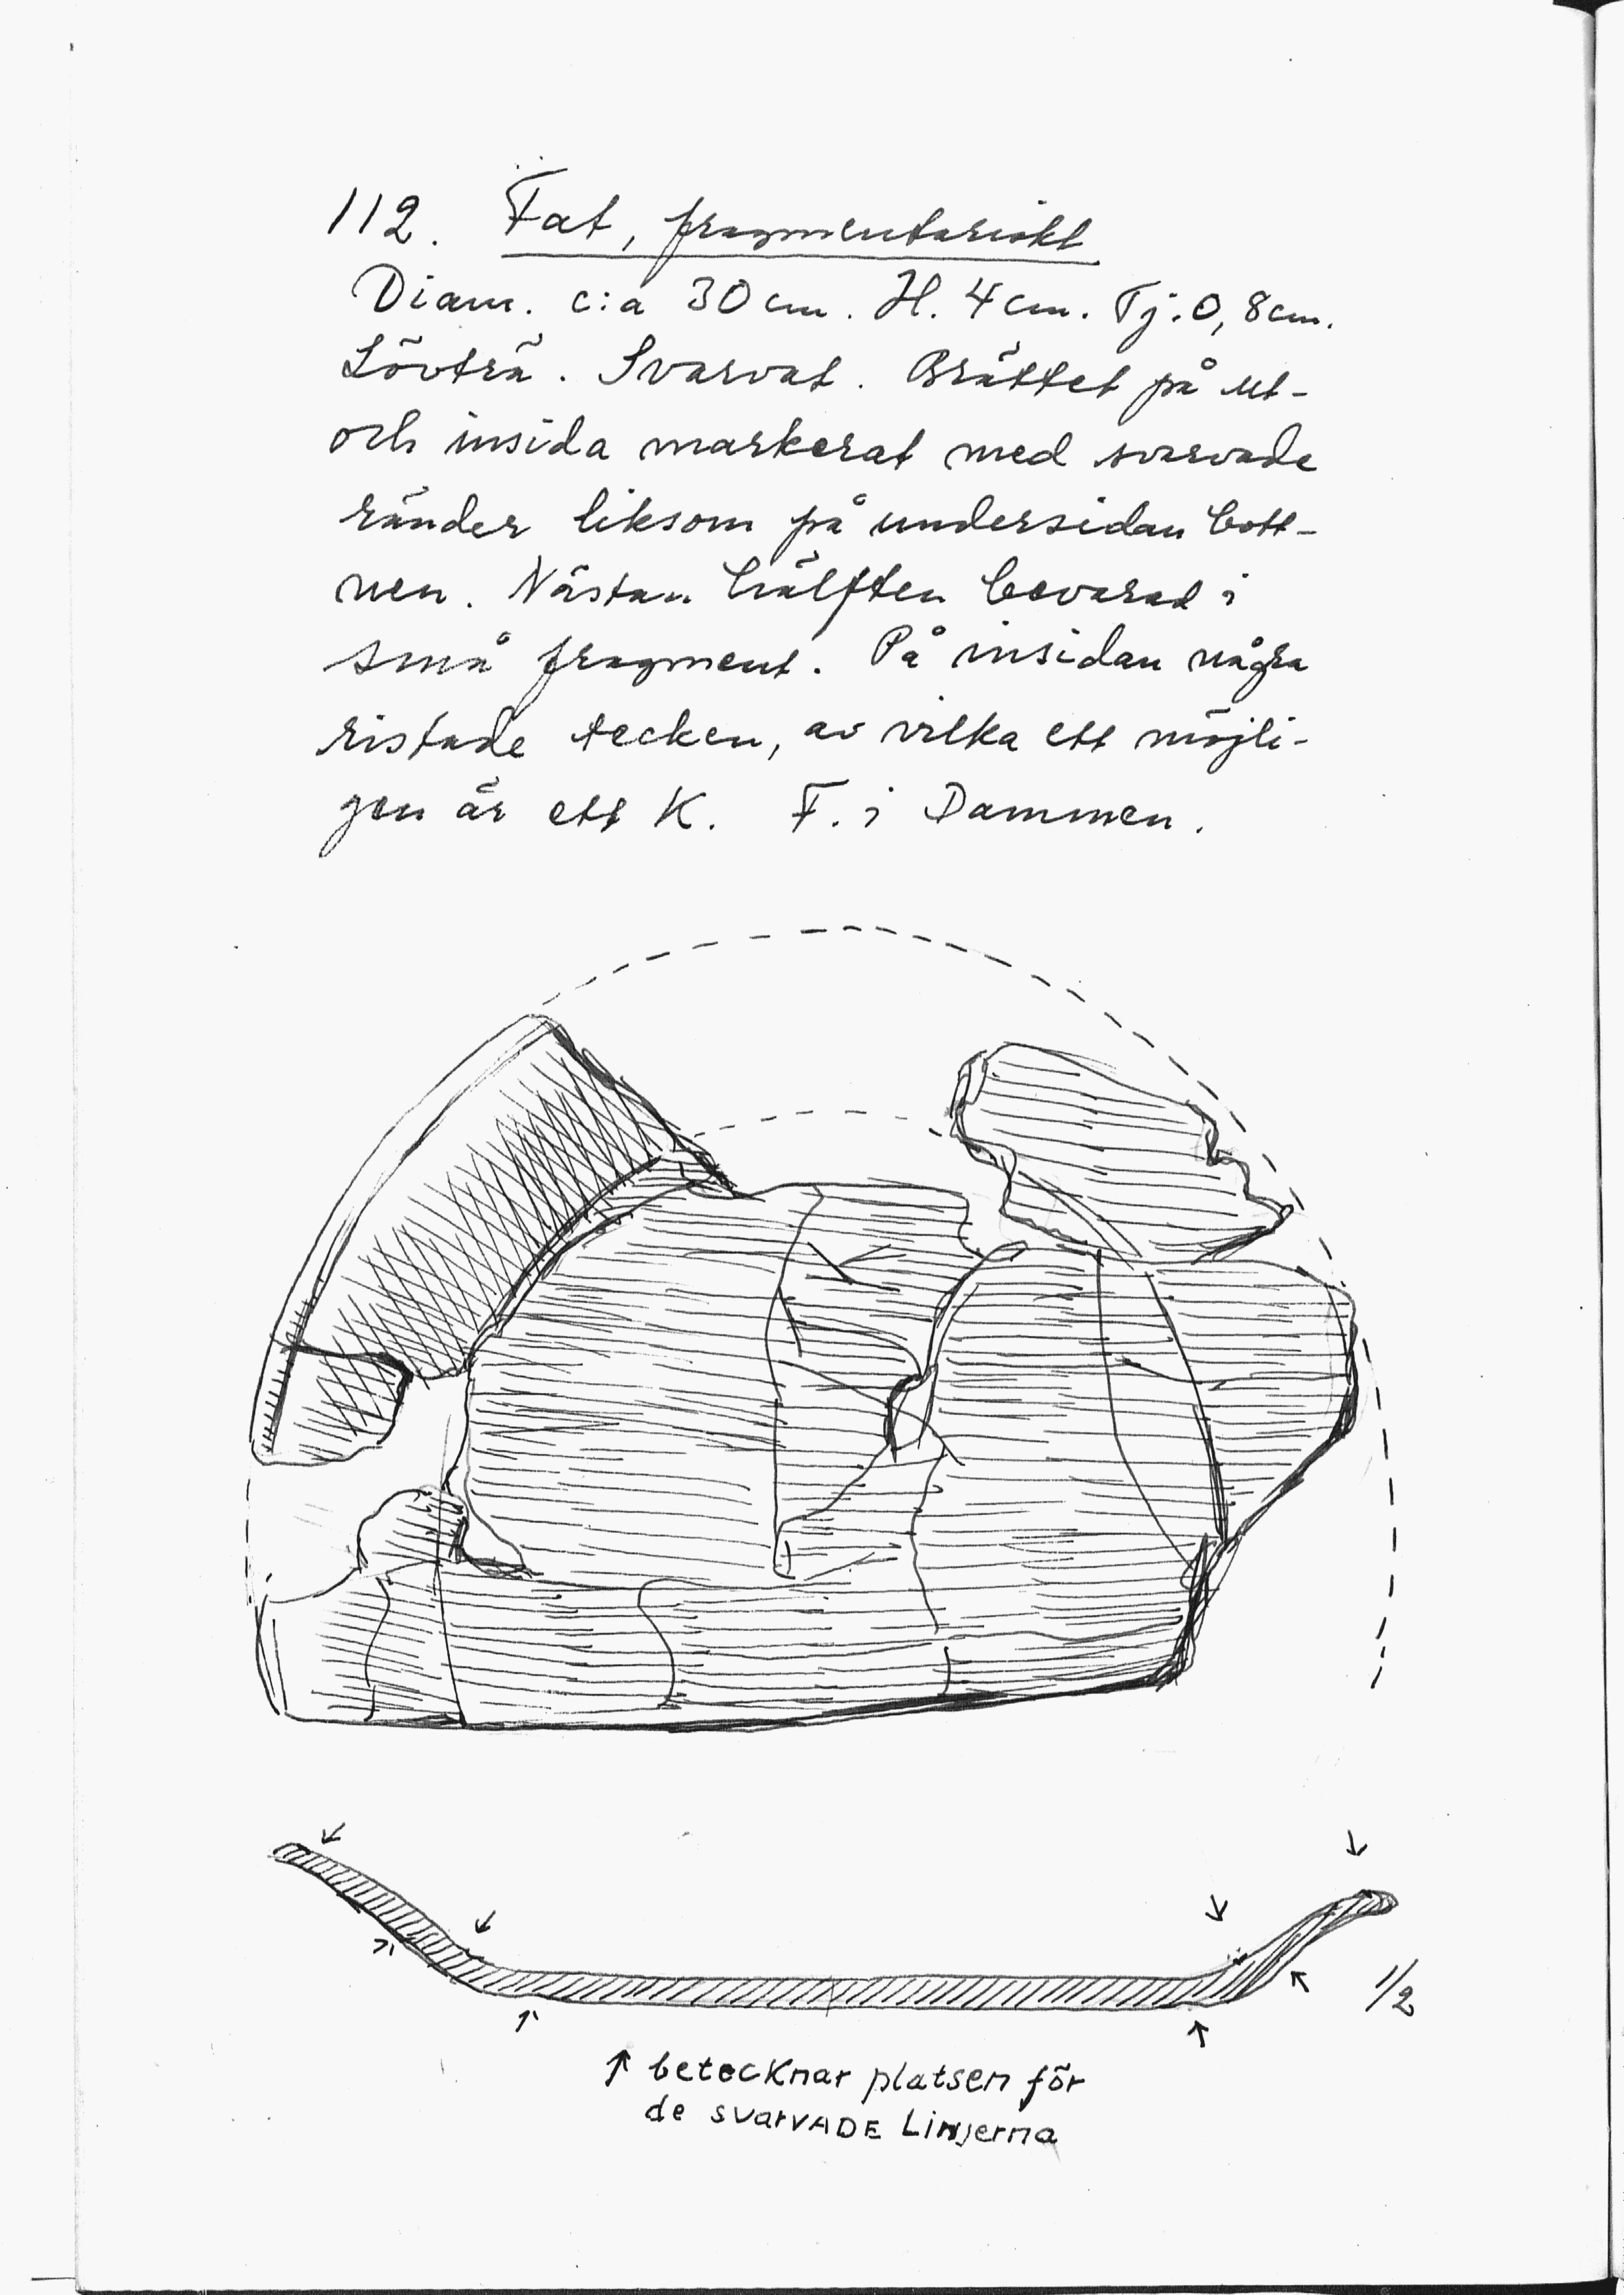 112. Fat, fragmentariskt
Diam. c:a 30 cm. H. 4 cm. Tj. 0,8 cm.
Lövträ. Svarvat. Brättet på ut-
och insida markerat med svarvade
ränder liksom på undersidan bott-
nen. Nästan hälften bevarad i
små fragment. På insidan några
ristade tecken, av vilka ett möjli-
gen är ett K. F. i Dammen.
1/2
↑ betecknar platsen för
de svarvADE Linjerna